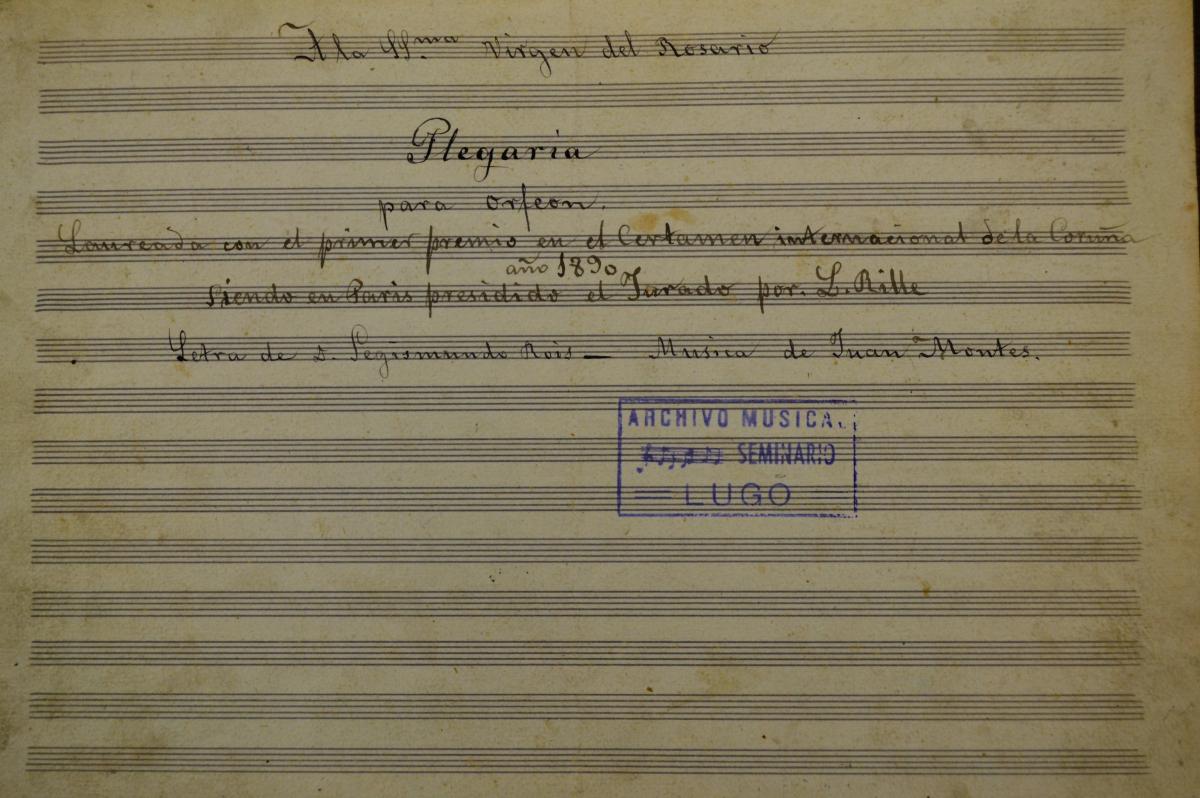 A la SS.ma Virgen del Rosario
Plegaria
para orfeon.
Laureada con el primer premio en el Certamen internacional de la Coruña
año 1890
siendo en Paris presidido el Jurado por. L. Rille
Letra de D. Segismundo Rois — Musica de Juan Montes.
ARCHIVO MUSICAL
SEMINARIO
LUGO